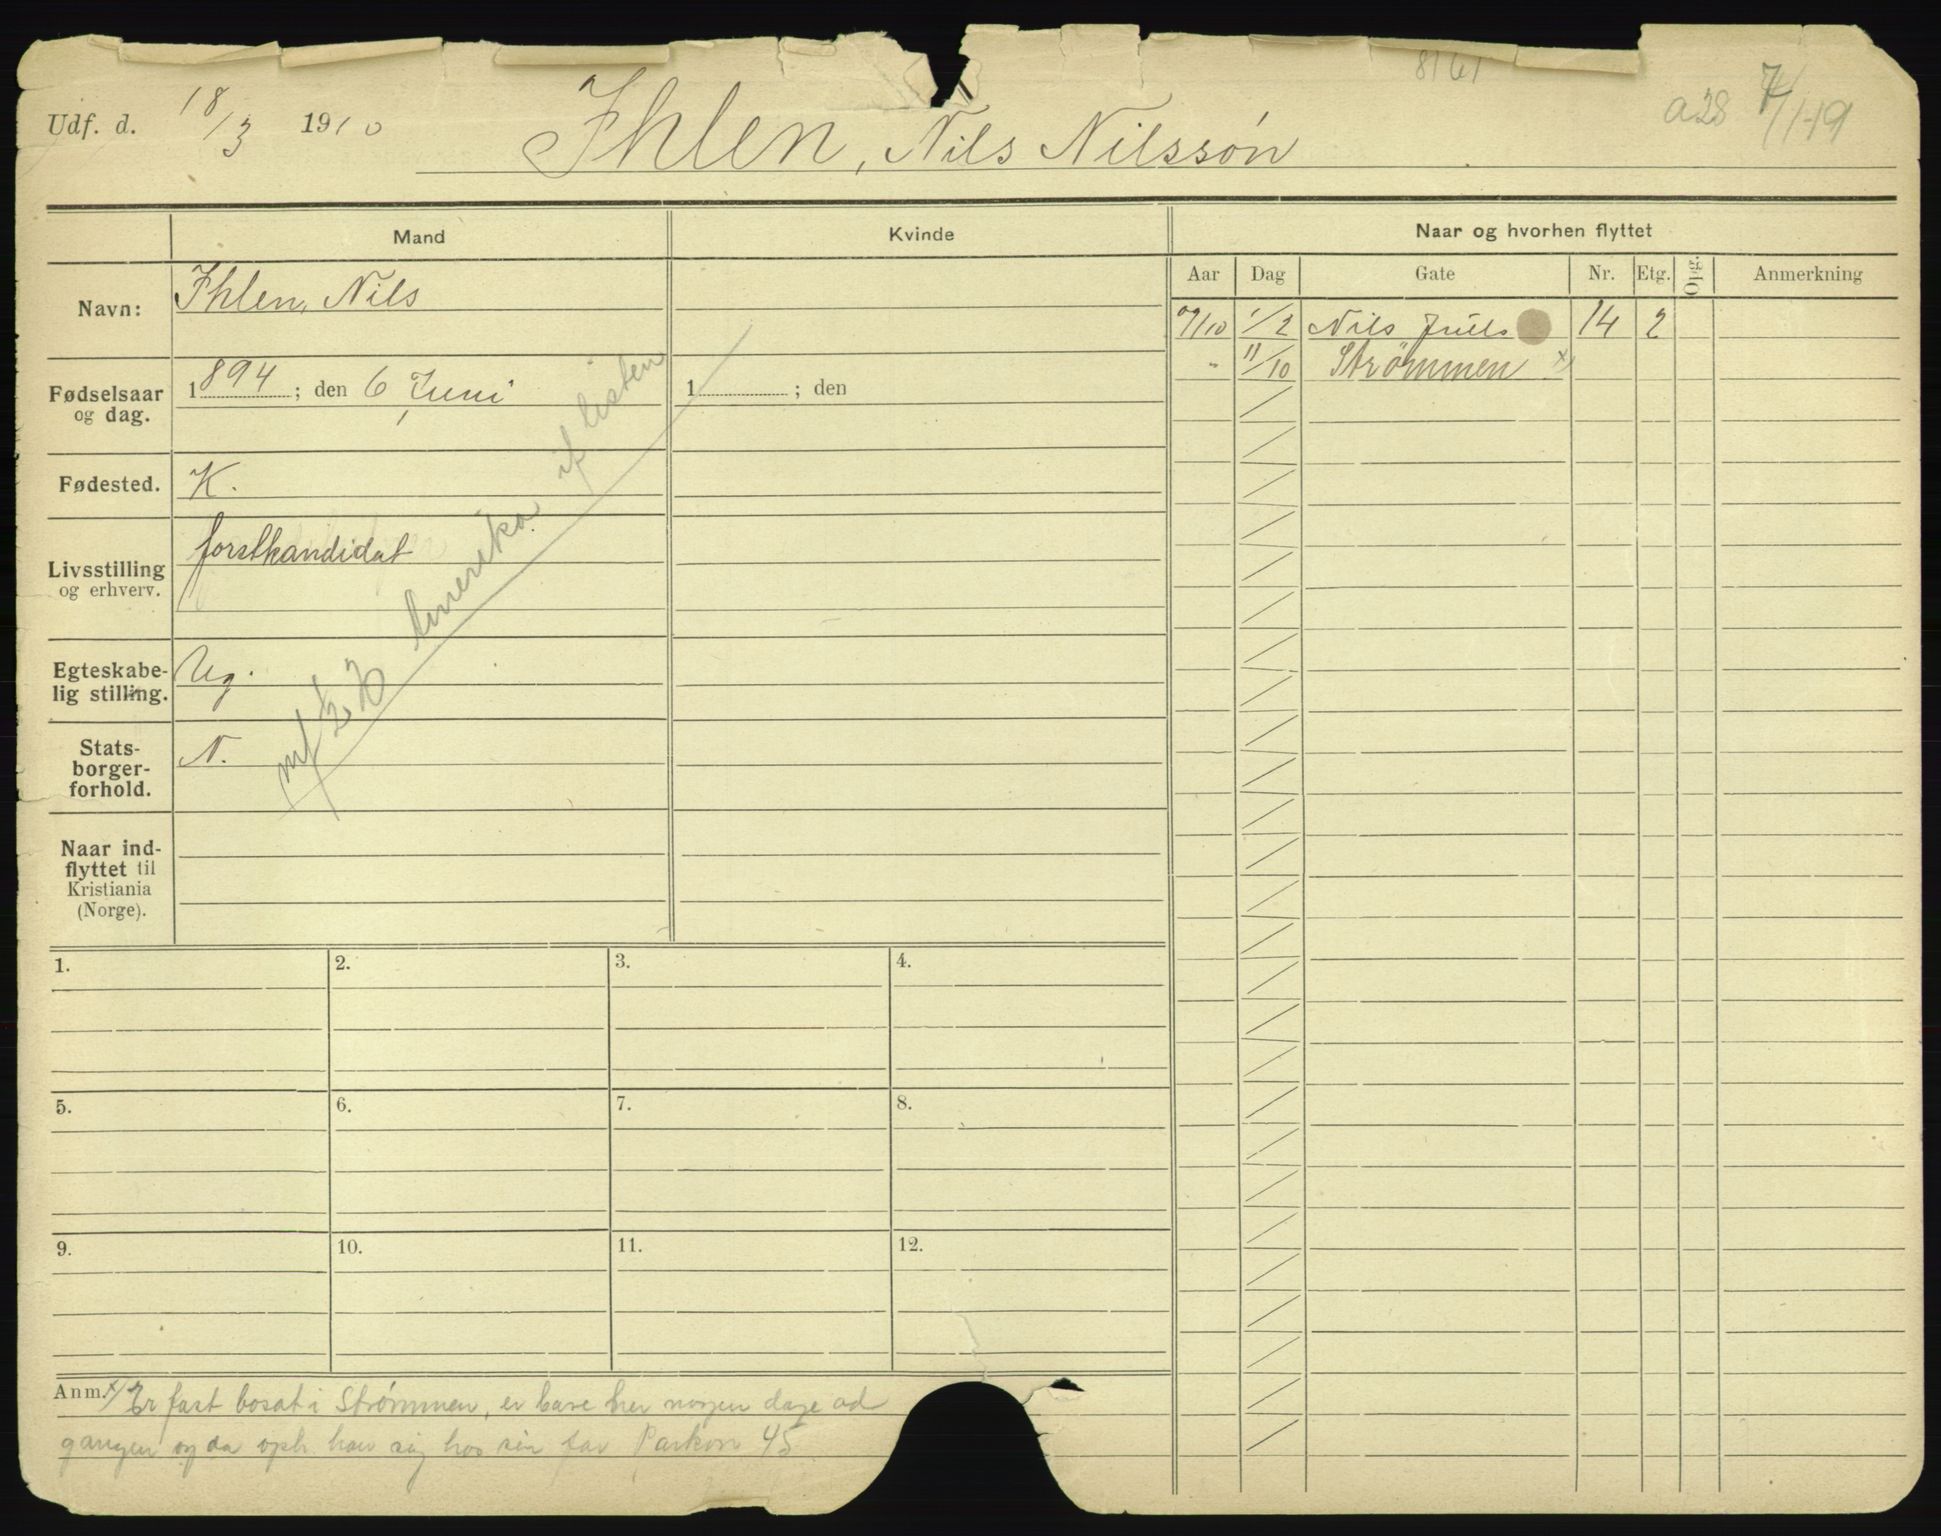 8161
Udf. d. 18/3 1910 Ihlen, Nils Nilssøn a28 7/1-19
Mand Kvinde Naar og hvorhen flyttet
Aar Dag Gate Nr. Etg. Opg. Anmerkning
Navn: Ihlen, Nils
09/10 1/2 Nils Juels 14 2
" 11/10 Strömmen x)
Fødselsaar
og dag.
1894; den 6 Juni 1 ; den
Fødested. K.
Livsstilling
og erhverv.
forstkandidat
Egteskabe-
lig stilling.
Ug.
Stats-
borger-
forhold.
N.
Naar ind-
flyttet til
Kristiania
(Norge).
Amerika if listen
1. 2. 3. 4.
5. 6. 7. 8.
9. 10. 11. 12.
Anm. x/ Er fast bosat i Strømmen, er bare her nogen dage ad
gangen og da oph. han sig hos sin far Parkvn 45